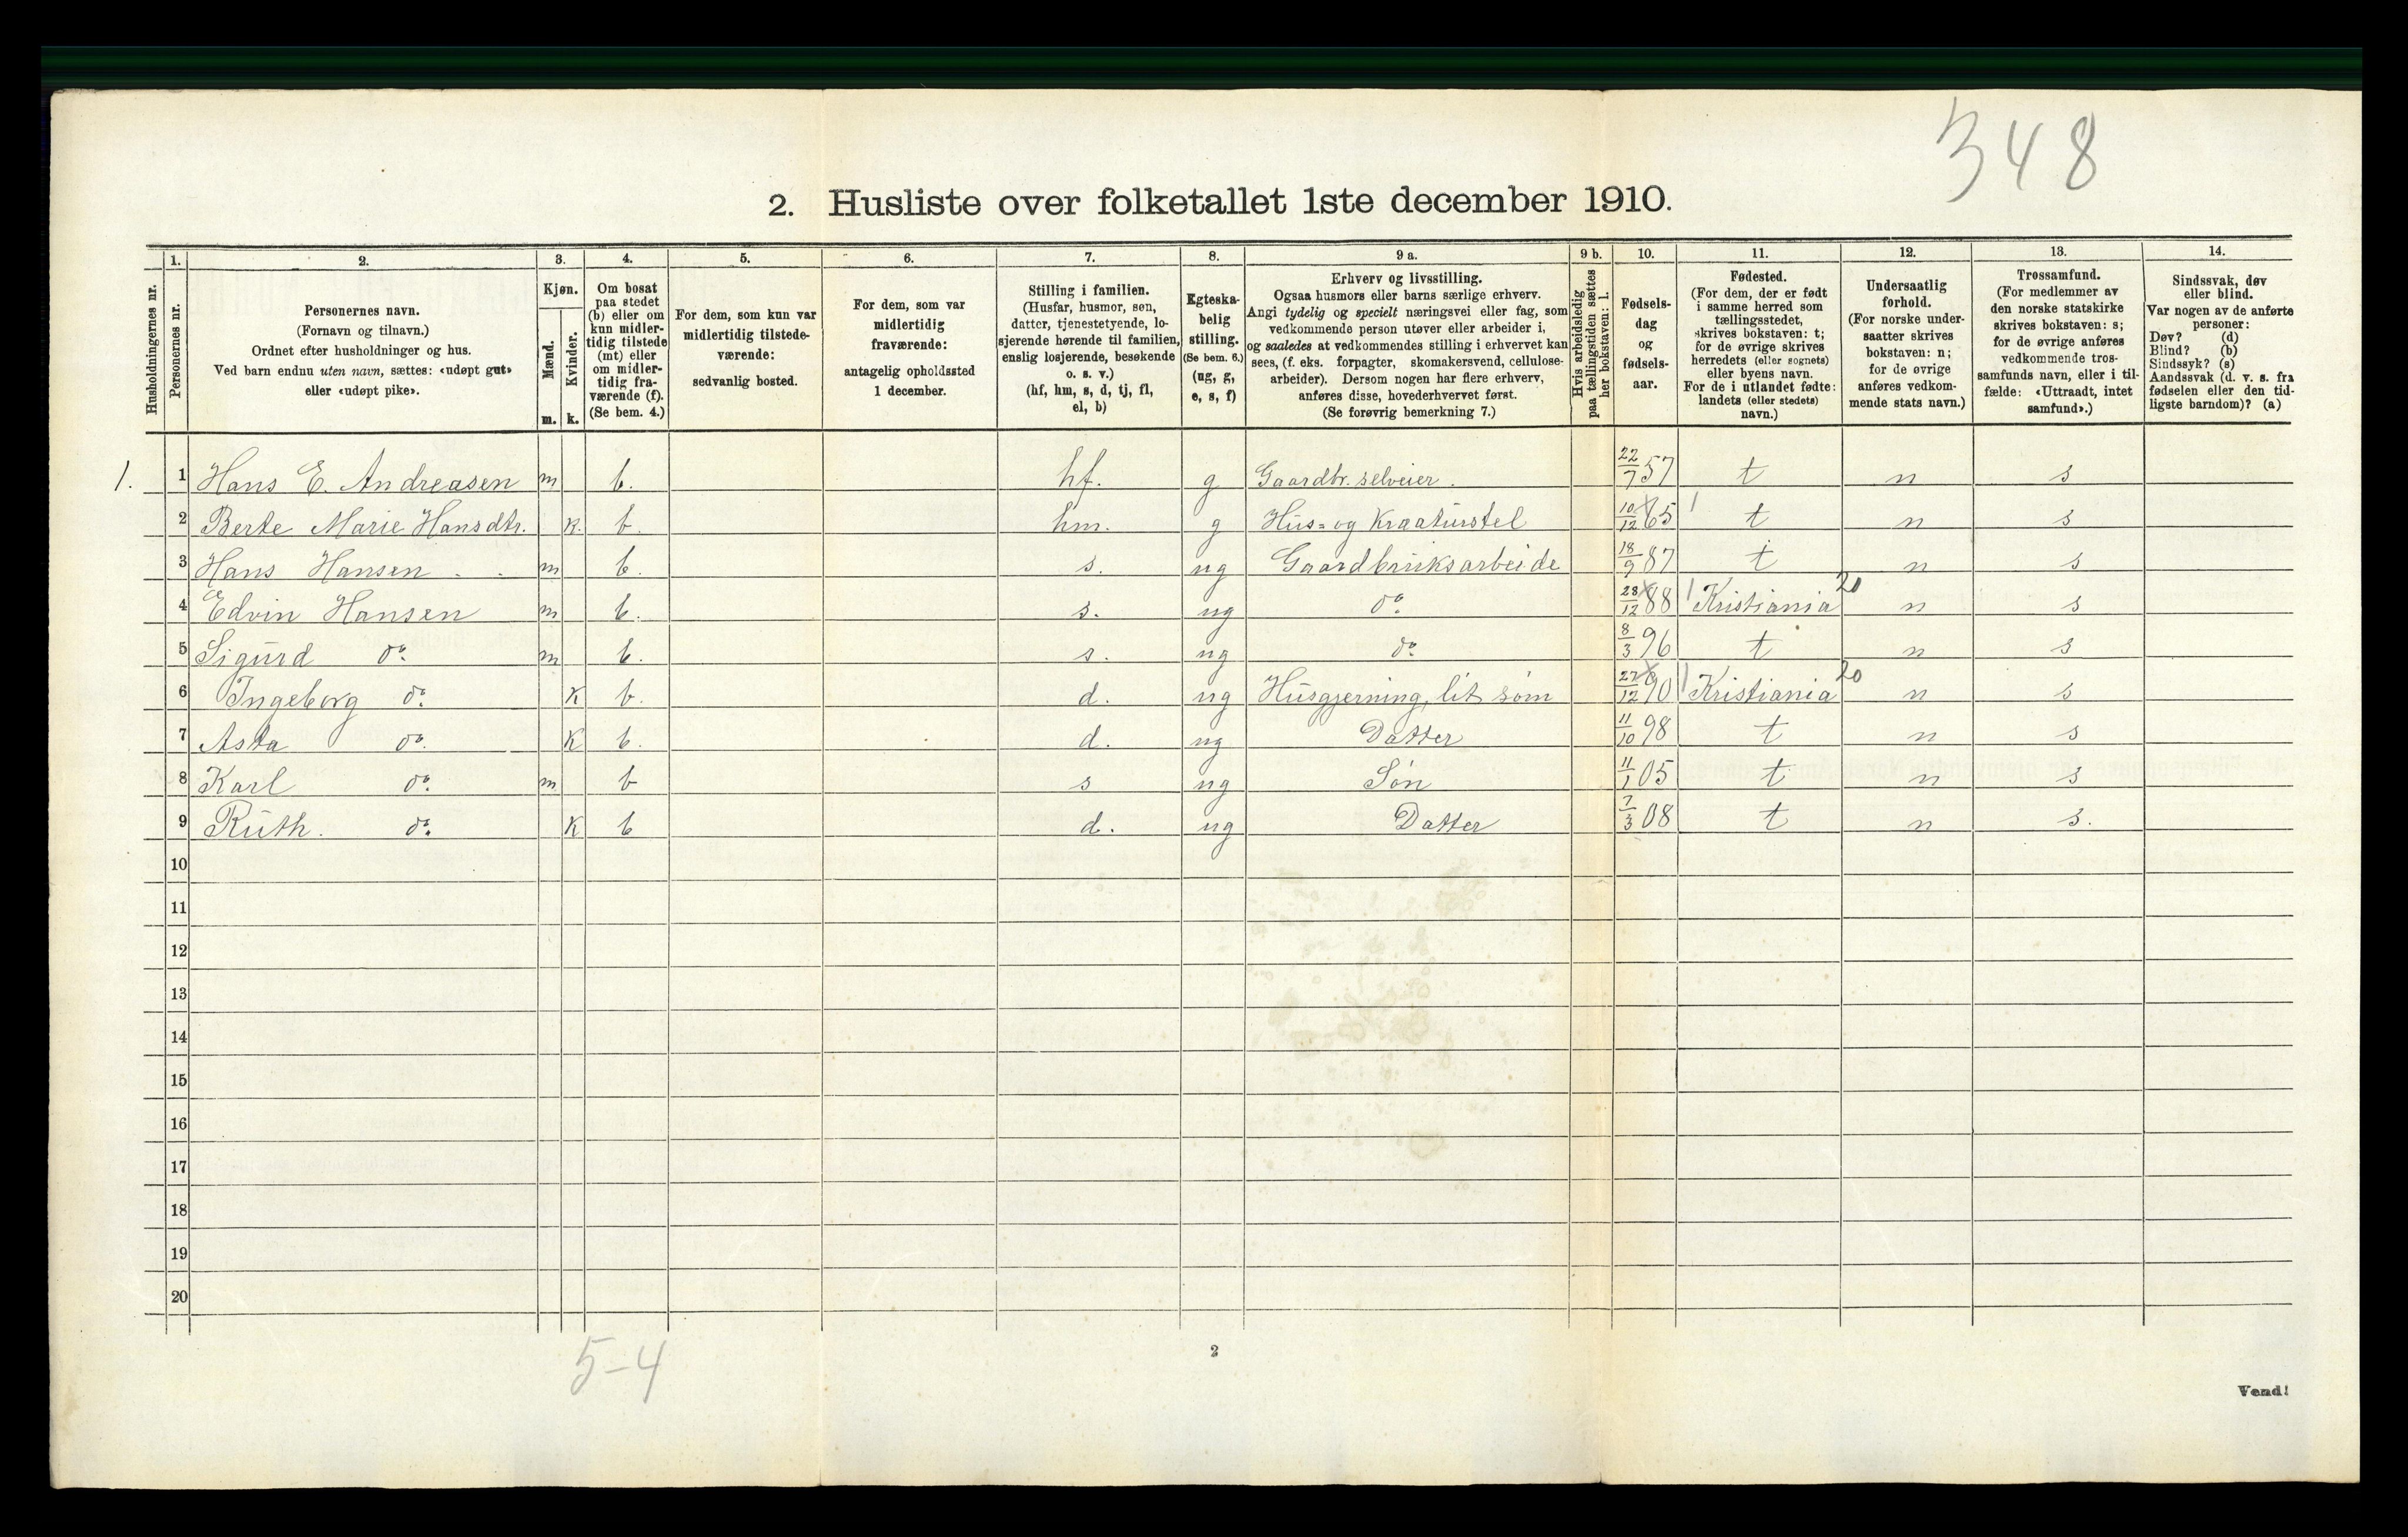 348
2. Husliste over folketallet 1ste december 1910.
1. 2. 3. 4. 5. 6. 7. 8. 9 a. 9 b. 10. 11. 12. 13. 14.
Husholdningernes nr.
Personernes nr.
Personernes navn.
(Fornavn og tilnavn.)
Ordnet efter husholdninger og hus.
Ved barn endnu uten navn, sættes: «udøpt gut»
eller «udøpt pike».
Kjøn.
Mænd.
Kvinder.
m. k.
Om bosat
paa stedet
(b) eller om
kun midler-
tidig tilstede
(mt) eller
om midler-
tidig fra-
værende (f).
(Se bem. 4.)
For dem, som kun var
midlertidig tilstede-
værende:
sedvanlig bosted.
For dem, som var
midlertidig
fraværende:
antagelig opholdssted
1 december.
Stilling i familien.
(Husfar, husmor, søn,
datter, tjenestetyende, lo-
sjerende hørende til familien,
enslig losjerende, besøkende
o. s. v.)
(hf, hm, s, d, tj, fl,
el, b)
Egteska-
belig
stilling.
(Se bem. 6.)
(ug, g,
e, s, f)
Erhverv og livsstilling.
Ogsaa husmors eller barns særlige erhverv.
Angi tydelig og specielt næringsvei eller fag, som
vedkommende person utøver eller arbeider i,
og saaledes at vedkommendes stilling i erhvervet kan
sees, (f. eks. forpagter, skomakersvend, cellulose-
arbeider). Dersom nogen har flere erhverv,
anføres disse, hovederhvervet først.
(Se forøvrig bemerkning 7.)
Hvis arbeidsledig
paa tællingstiden sættes
her bokstaven: l.
Fødsels-
dag
og
fødsels-
aar.
Fødested.
(For dem, der er født
i samme herred som
tællingsstedet,
skrives bokstaven: t;
for de øvrige skrives
herredets (eller sognets)
eller byens navn.
For de i utlandet fødte:
landets (eller stedets)
navn.)
Undersaatlig
forhold.
(For norske under-
saatter skrives
bokstaven: n;
for de øvrige
anføres vedkom-
mende stats navn.)
Trossamfund.
(For medlemmer av
den norske statskirke
skrives bokstaven: s;
for de øvrige anføres
vedkommende tros-
samfunds navn, eller i til-
fælde: «Uttraadt, intet
samfund».)
Sindssvak, døv
eller blind.
Var nogen av de anførte
personer:
Døv? (d)
Blind? (b)
Sindssyk? (s)
Aandssvak (d. v. s. fra
fødselen eller den tid-
ligste barndom)? (a)
1. 1 Hans E. Andreasen m b. hf. g Gaardbr. selveier. 22/7 57 t n s
2 Berte Marie Hansdtr. k. b. hm. g Hus= og Kraaturstel 10/12 65 t n s
3 Hans Hansen m b. s. ug Gaardbruksarbeide 18/9 87 t n s
4 Edvin Hansen m b. s. ug do. 28/12 88 Kristiania 20 n s
5 Sigurd do. m b. s. ug do. 8/3 96 t n s
6 Ingeborg do. k b. d. ug Husgjerning, lit søm 27/12 90 Kristiania 20 n s
7 Asta do. k b. d. ug Datter 11/10 98 t n s
8 Karl do. m b s ug Søn 11/1 05 t n s
9 Ruth. do. k b d. ug Datter 7/3 08 t n s.
10
11
12
13
14
15
16
17
18
19
20
5-4
2
Vend!